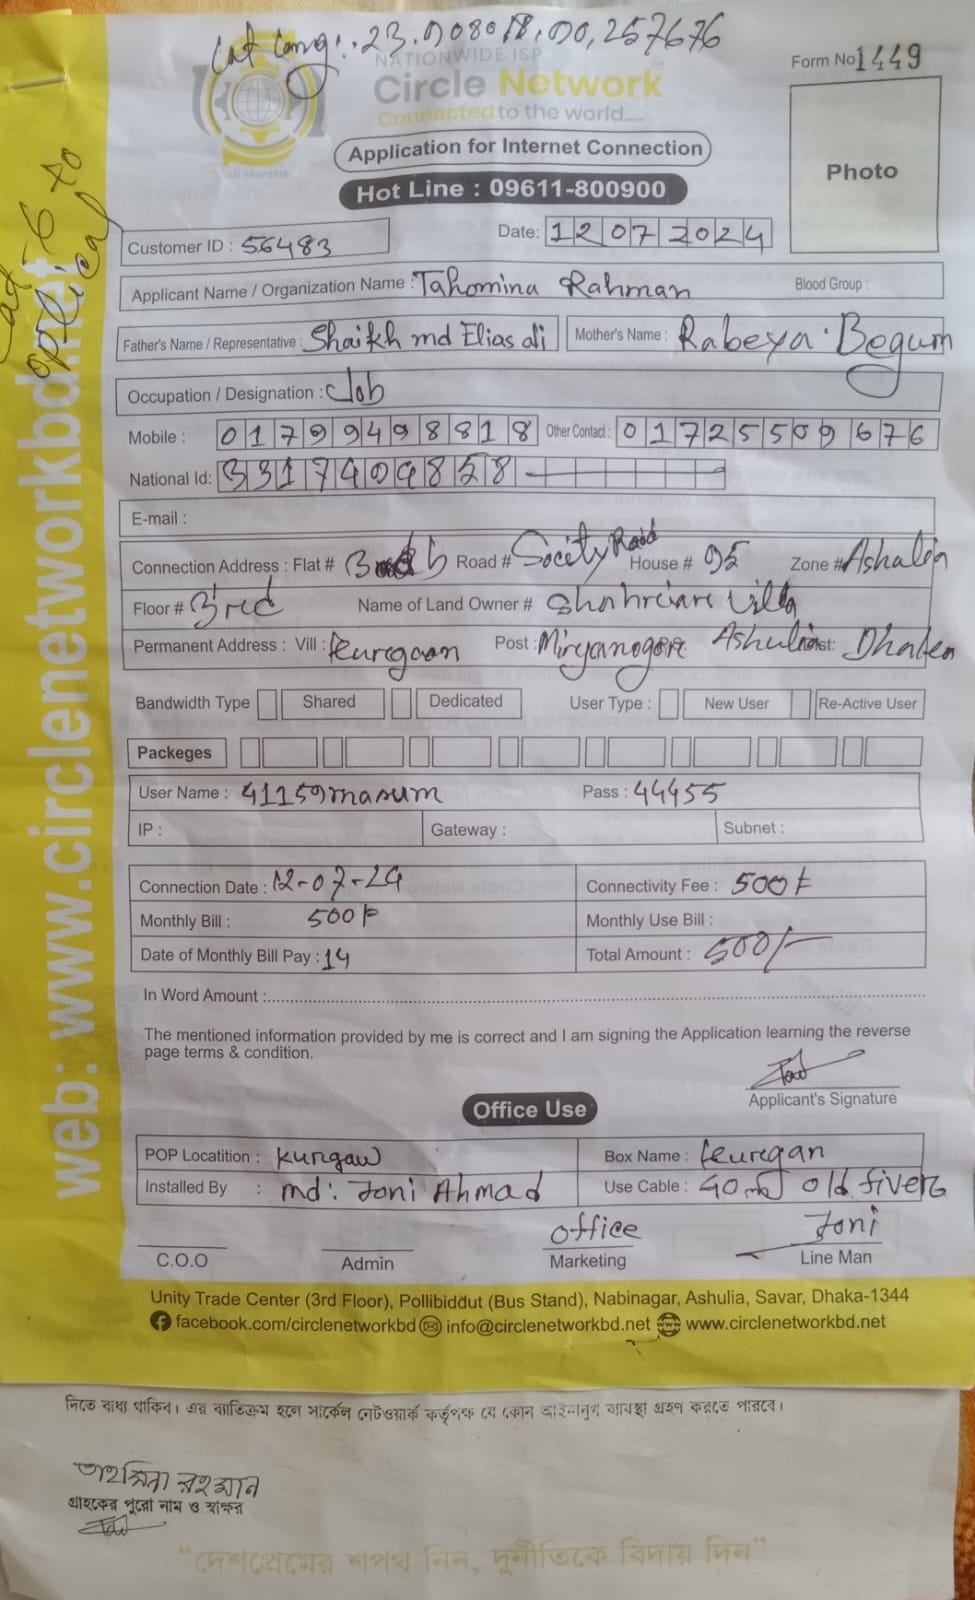 Lat Long:. 23.908018,90,257676
NATIONWIDE ISP
Circle Network
Connected to the world.....
Form No 1449
Application for Internet Connection
Photo
Hot Line : 09611-800900
Customer ID : 56483
Date: 12072024
Applicant Name / Organization Name : Tahomina Rahman Blood Group :
Father's Name / Representative : Shaikh md Elias ali Mother's Name : Rabeya Begum
Occupation / Designation : Job
Mobile : 01799498818 Other Contact : 01725509676
National Id: 3317409858
E-mail :
Connection Address : Flat # Road # Socity Road House # 95 Zone # Ashulia
Floor # 3'red Name of Land Owner # Shahriare Villa
Permanent Address : Vill : Kurgaon Post : Ashulia Dist: Dhaka
Bandwidth Type Shared Dedicated User Type : New User Re-Active User
Packeges
User Name : 41159masum Pass : 44455
IP : Gateway : Subnet :
Connection Date : 12-07-24 Connectivity Fee : 500
Monthly Bill : 500 Monthly Use Bill :
Date of Monthly Bill Pay : 14 Total Amount : 500/-
In Word Amount :
The mentioned information provided by me is correct and I am signing the Application learning the reverse
page terms & condition.
Applicant's Signature
Office Use
POP Locatition : Kurgaw Box Name : Kuregan
Installed By : md: Joni Ahmad Use Cable : old fiver
office Joni
C.O.O Admin Marketing Line Man
Unity Trade Center (3rd Floor), Pollibiddut (Bus Stand), Nabinagar, Ashulia, Savar, Dhaka-1344
facebook.com/circlenetworkbd info@circlenetworkbd.net www.circlenetworkbd.net
web: www.circlenetworkbd.net
cat-6 to
optical
দিতে বাধ্য থাকিব। এর ব্যতিক্রম হলে সার্কেল নেটওয়ার্ক কর্তৃপক্ষ যে কোন আইনানুগ ব্যবস্থা গ্রহণ করতে পারবে।
তাহমিনা রহমান
গ্রাহকের পুরো নাম ও স্বাক্ষর
"দেশপ্রেমের শপথ নিন, দুর্নীতিকে বিদায় দিন"